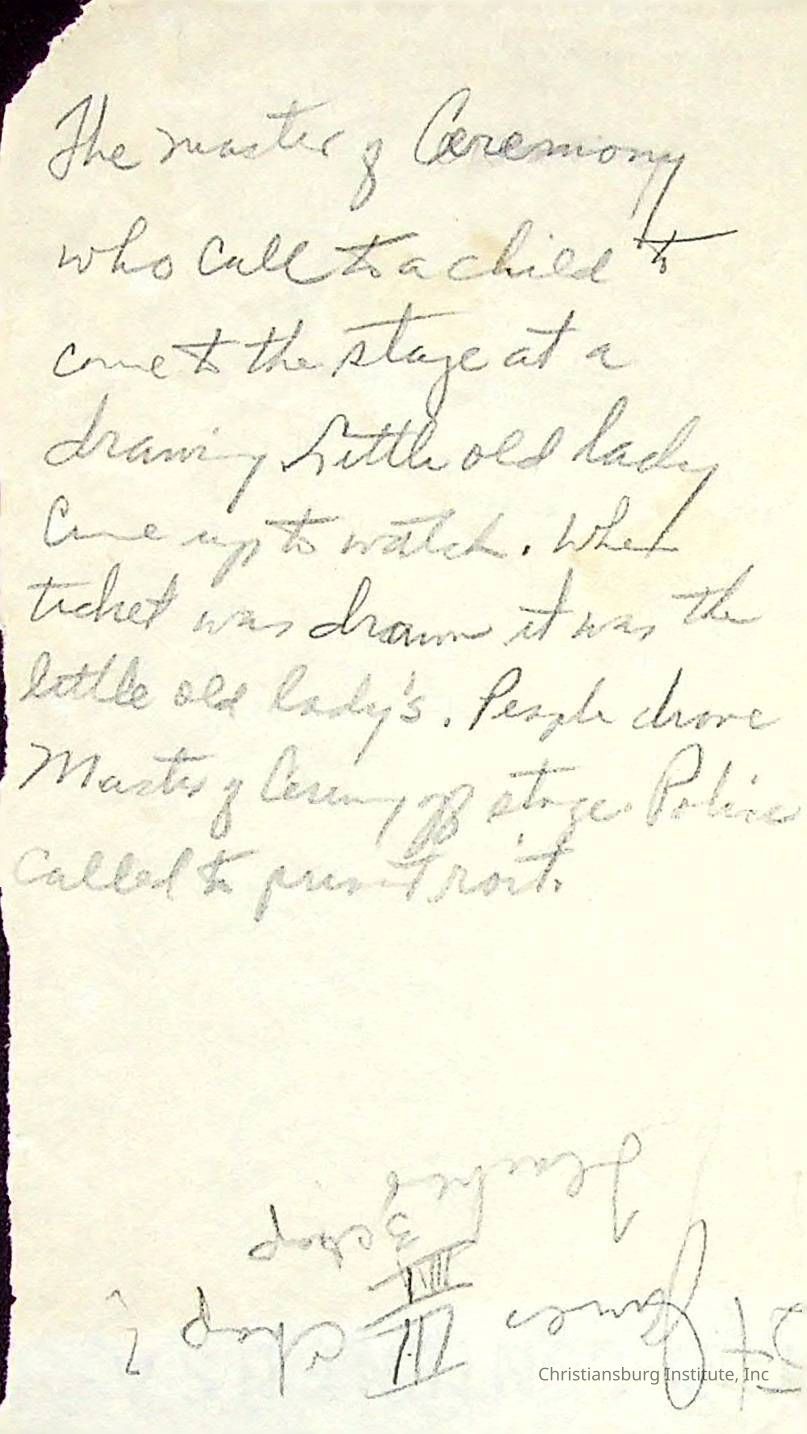 The master of Ceremony
who call to a child to
come to the stage at a
drawing little old lady
Came up to watch. When
ticket was drawn it was the
little old lady's. People drove
Master of Cermony off stage. Police
Called to prevent roit.
St James III chap
III
3 chap
Christiansburg Institute, Inc